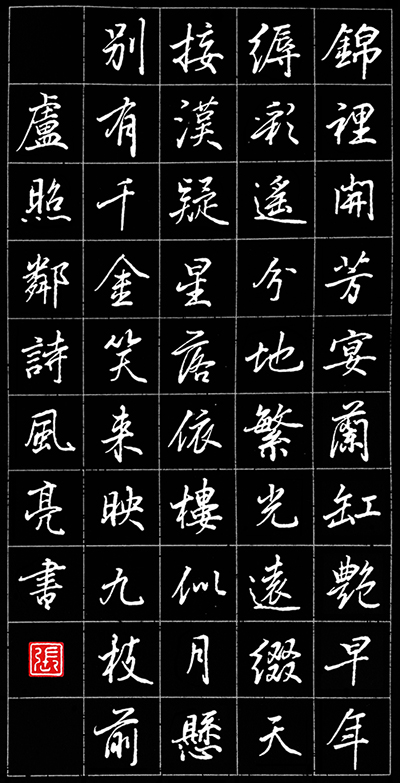 錦裡開芳宴蘭缸艷早年
縟彩遙分地繁光遠綴天
接漢疑星落依樓似月懸
別有千金笑来映九枝前
盧照鄰詩風亮書
張